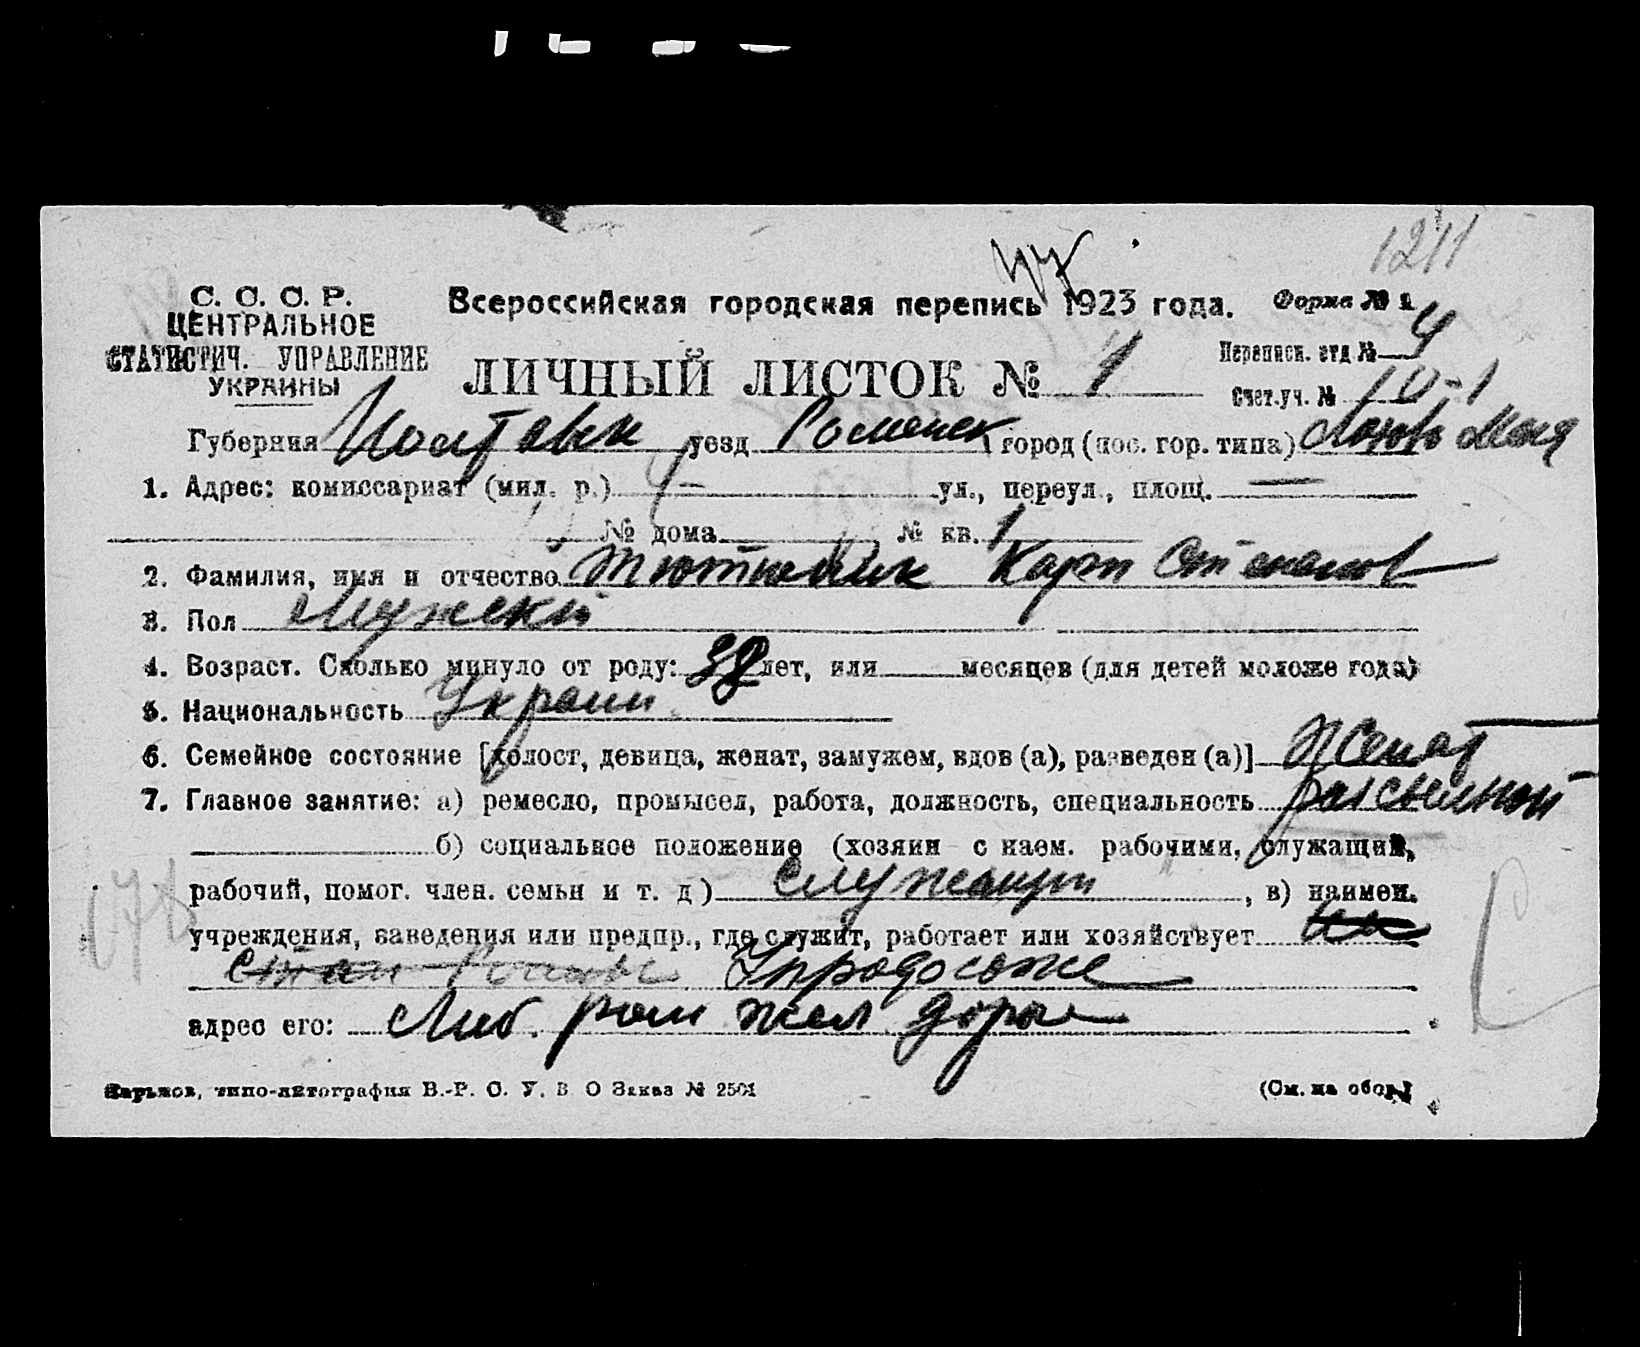 1211
С. С. С. Р.
ЦЕНТРАЛЬНОЕ
СТАТИСТИЧ. УПРАВЛЕНИЕ
УКРАИНЫ
Всероссийская городская перепись 1923 года. Форма № 1
ЛИЧНЫЙ ЛИСТОК № 1
Переписн. отд № 4
Счет.уч. № 10-1
Губерния Полтавск уезд Роменск город (пос. гор. типа)
1. Адрес: комиссариат (мил. р.) ул., переул., площ. —
№ дома № кв. 1
2. Фамилия, имя и отчество Тютюнник Карп Степанов
3. Пол Мужской
4. Возраст. Сколько минуло от роду: 38 лет, или месяцев (для детей моложе года)
5. Национальность Украин
6. Семейное состояние [холост, девица, женат, замужем, вдов (а), разведен (а)] Женат
7. Главное занятие: а) ремесло, промысел, работа, должность, специальность рассыльной
б) социальное положение (хозяин с наем. рабочими, служащий,
рабочий, помог. член. семьи и т. д) Служащий, в) наимен.
учреждения, заведения или предпр., где служит, работает или хозяйствует на
Стан Ромны
адрес его: Либ. ром жел дороги
Харьков, типо-литография В.-Р. С. У. В. О Заказ № 2501
(См. на обор.)